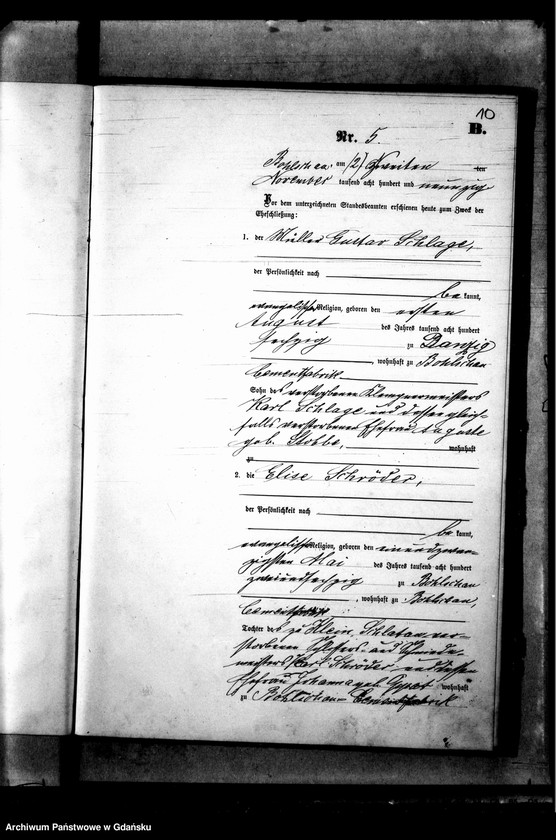 10
B.
Nr. 5.
Bohlschau am (2) Zweiten ten
November tausend acht hundert und neunzig
Vor dem unterzeichneten Standesbeamten erschienen heute zum Zweck der
Eheschließung:
1. der Müller Gustav Schlage,
der Persönlichkeit nach
be kannt,
evangelischer Religion, geboren den ersten
August des Jahres tausend acht hundert
sechzig zu Danzig
, wohnhaft zu Bohlschau
Cementfabrik
Sohn des verstorbenen Klempnermeisters
Karl Schlage und dessen gleich-
falls verstorbenen Ehefrau Auguste
geb. Stobbe, wohnhaft
zu
2. die Elise Schröder,
der Persönlichkeit nach
be kannt,
evangelischer Religion, geboren den einundzwan-
zigsten Mai des Jahres tausend acht hundert
zweiundsechzig zu Bohlschau
, wohnhaft zu Bohlschau,
Tochter des zu Klein Schlatau ver-
storbenen und Schmiede-
meisters Carl Schröder und dessen
Ehefrau Johanna geb. wohnhaft
zu Bohlschau Cementfabrik
Archiwum Państwowe w Gdańsku